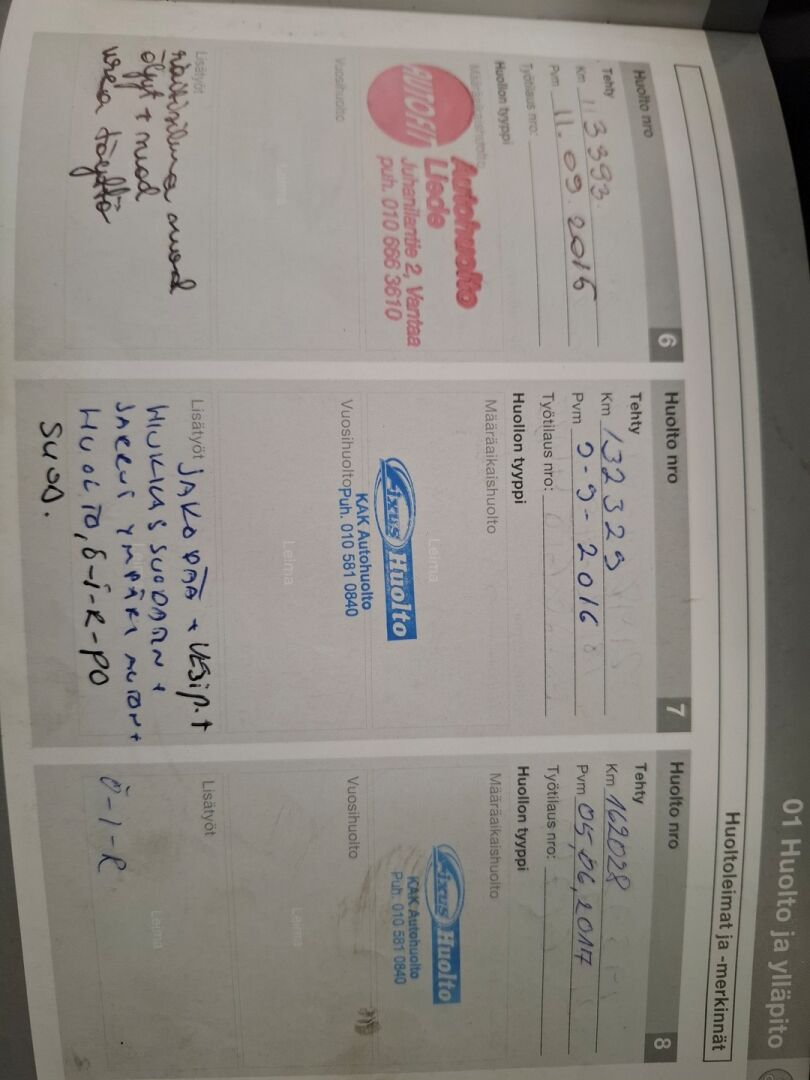 01 Huolto ja ylläpito
Huoltoleimat ja -merkinnät
Huolto nro 6
Tehty
Km 113393.
Pvm 11.09.2015
Työtilaus nro:
Huollon tyyppi
Määräaikaishuolto
AUTOFIT
Autohuolto
Liede
Juhanilantie 2, Vantaa
puh. 010 666 3610
Vuosihuolto
Leima
Lisätyöt
raitisilma suod
öljyt + suod
urea täyttö
Huolto nro 7
Tehty
Km 132329
Pvm 9-9-2016
Työtilaus nro:
Huollon tyyppi
Määräaikaishuolto
Leima
Fixus Huolto
KAK Autohuolto
Puh. 010 581 0840
Vuosihuolto
Leima
Lisätyöt
JAKOPÄÄ + VESIP. +
HIUKKAS SUODATIN +
JARRUT YMPÄRI AUTON +
HUOLTO, Ö-I-R-PO
SUOD.
Huolto nro 8
Tehty
Km 162028
Pvm 05.06.2017
Työtilaus nro:
Huollon tyyppi
Määräaikaishuolto
Fixus Huolto
KAK Autohuolto
Puh. 010 581 0840
Vuosihuolto
Leima
Lisätyöt
Leima
Ö-I-R